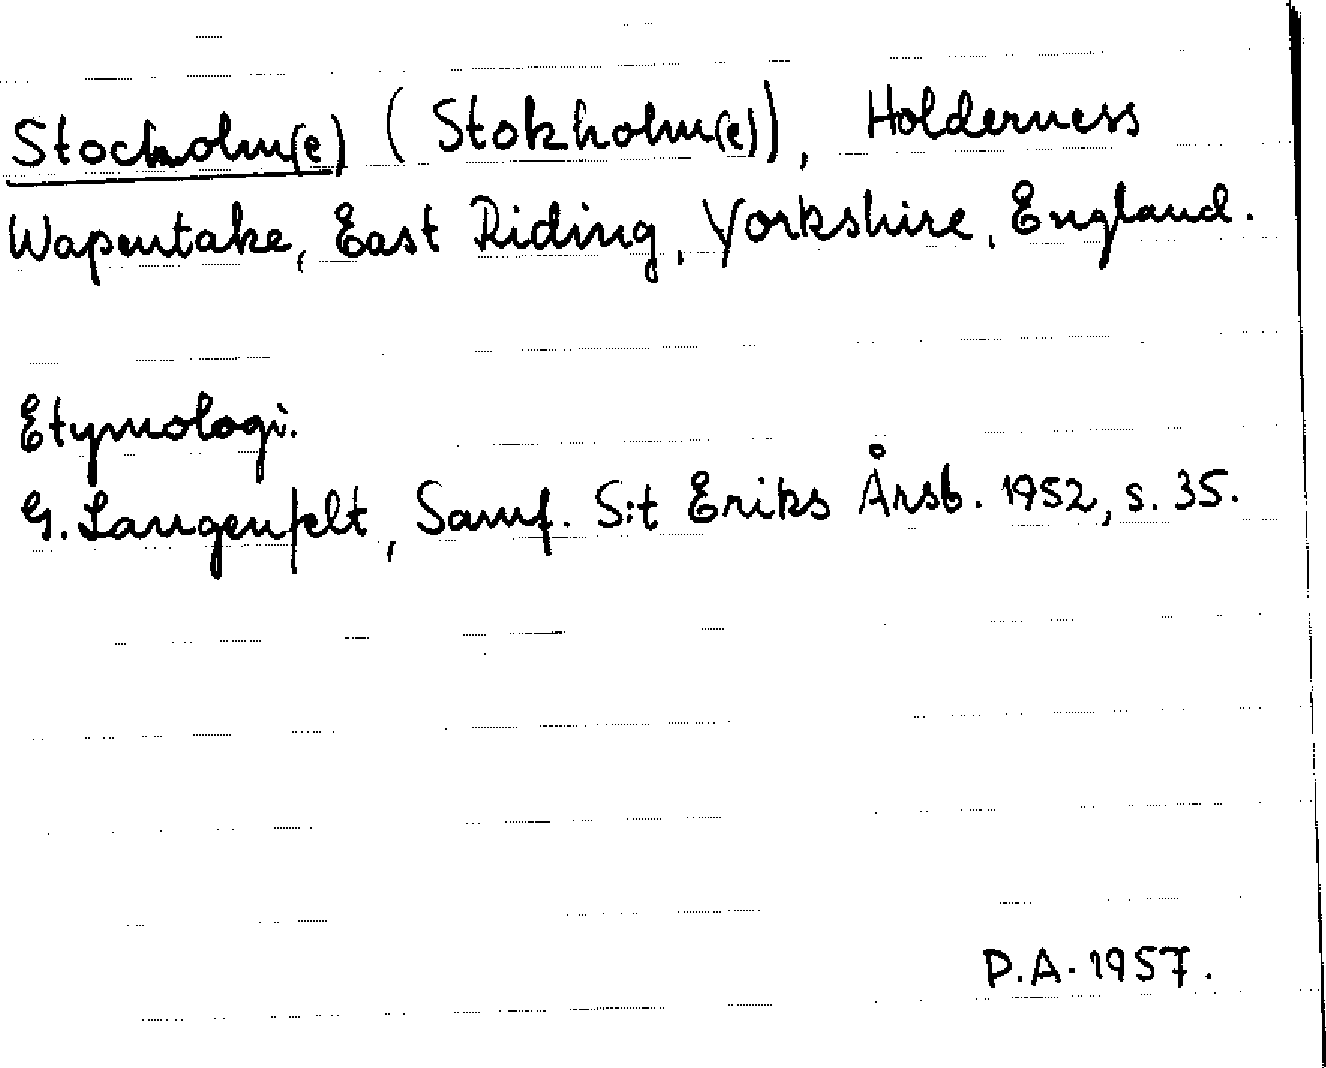 Stockholm(e) (Stokholm(e)), Holderness
Wapentake, East Riding, Yorkshire, England.
Etymologi.
G. Langenfelt, Samf. S:t Eriks Årsb. 1952, s. 35.
P.A. 1957.